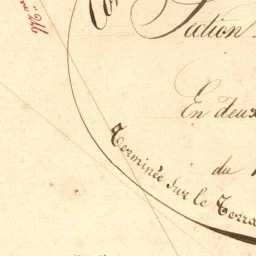 n° 246
Section
En deux
du
Terminée sur le Terra